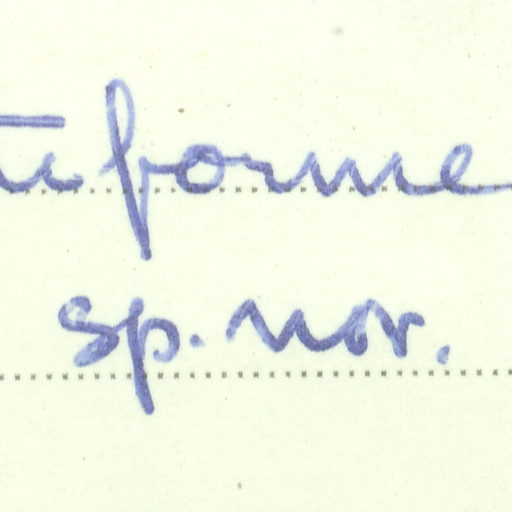 forme
sp. nov.